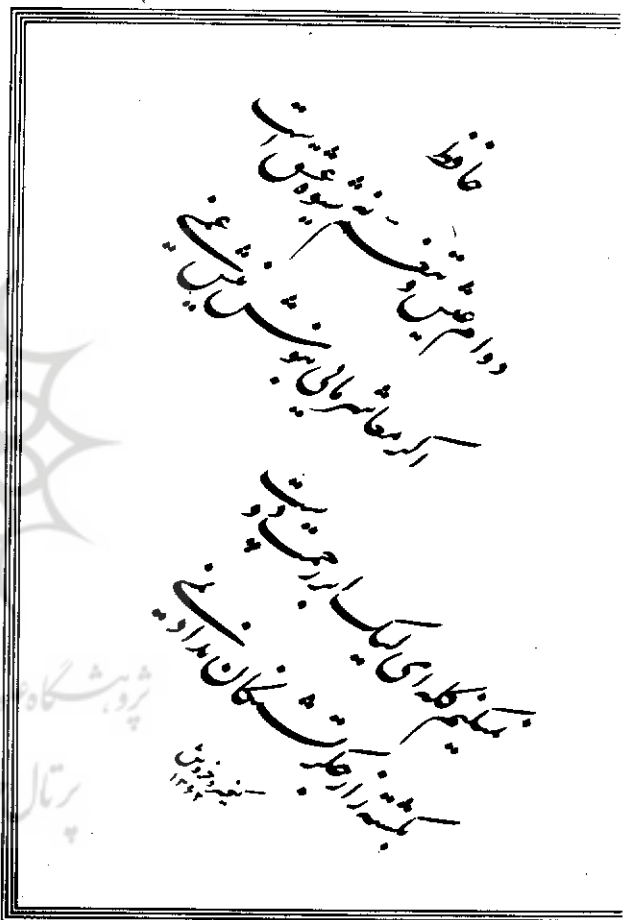 حافظ
دوام عیش و تنعم نه شیوه عشق است
اگر معاشر مائی بنوش نیش غمی
نمیکنم گله ای لیک ابر رحمت دوست
بکشته زار جگر تشنگان نداد نمی
۱۳۶۲
پژوهشگاه علوم
پرتال